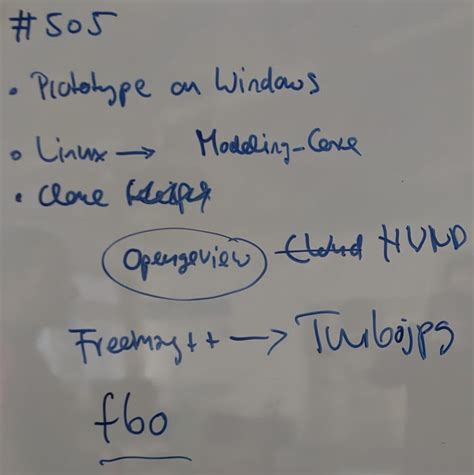 #505
• Prototype on Windows
• Linux → Modeling-Core
• Clone
Opengeview Cloud HUND
Freeimag++ → Turbojpg
fbo